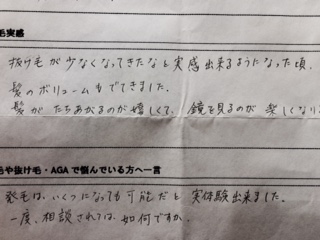 毛実感
抜け毛が少なくなってきたなと実感出来るようになった頃、
髪のボリュームもでてきました。
髪がたちあがるのが嬉しくて、鏡を見るのが楽しくなり
毛や抜け毛・AGAで悩んでいる方へ一言
発毛は、いくつになっても可能だと実体験出来ました。
一度、相談されては、如何ですか。